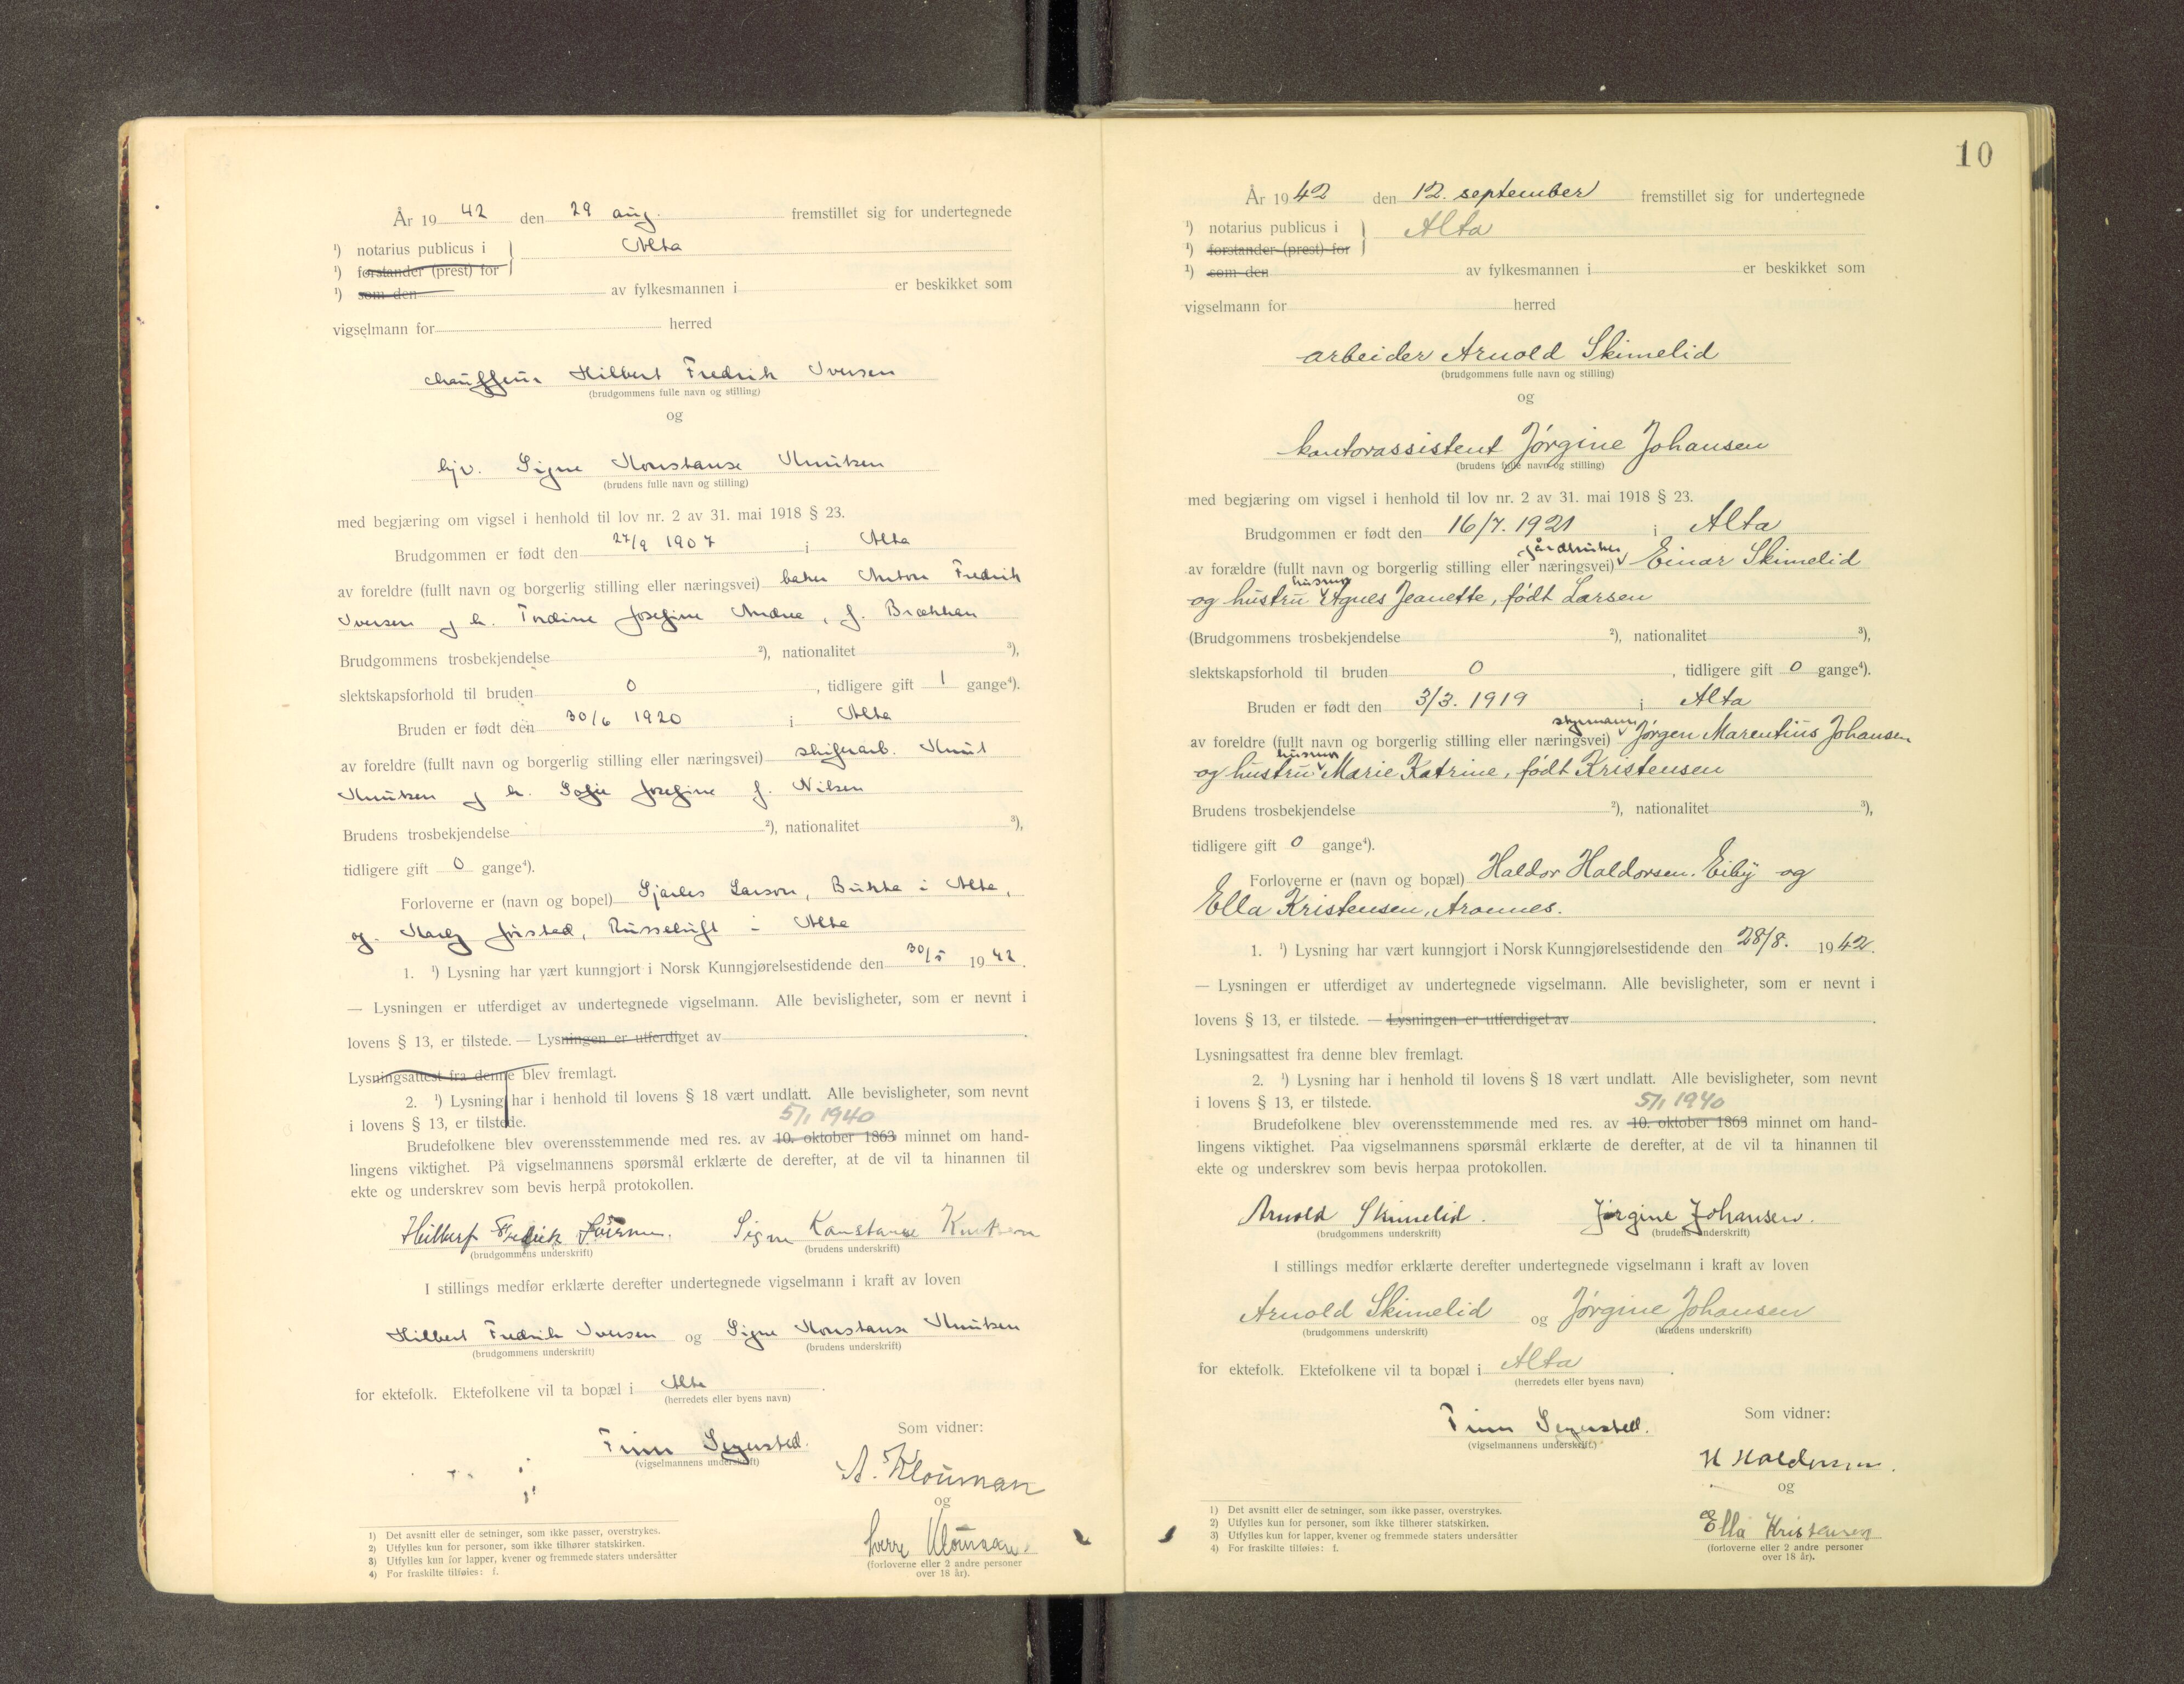 År 1942 den 29 aug. fremstillet sig for undertegnede
¹) notarius publicus i } Alta
¹) forstander (prest) for
¹) som den av fylkesmannen i er beskikket som
vigselmann for herred
chauffeur Hilbert Fredrik Iversen
(brudgommens fulle navn og stilling)
og
hjv. Signe Konstanse Knutsen
(brudens fulle navn og stilling)
med begjæring om vigsel i henhold til lov nr. 2 av 31. mai 1918 § 23.
Brudgommen er født den 27/9 1907 i Alta
av foreldre (fullt navn og borgerlig stilling eller næringsvei) baker Anton Fredrik
Iversen og h. Tordine Josefine Andrea, f. Brækken
Brudgommens trosbekjendelse ²), nationalitet ³),
slektskapsforhold til bruden 0, tidligere gift 1 gange⁴).
Bruden er født den 30/6 1920 i Alta
av foreldre (fullt navn og borgerlig stilling eller næringsvei) skiferarb. Knut
Knutsen og h. Sofie Josefine f. Nilsen
Brudens trosbekjendelse ²), nationalitet ³),
tidligere gift 0 gange⁴).
Forloverne er (navn og bopel) Sjarles Larson, Bukta i Alta,
og Jøsted, Russeluft i Alta
1. ¹) Lysning har vært kunngjort i Norsk Kunngjørelsestidende den 30/5 1942.
— Lysningen er utferdiget av undertegnede vigselmann. Alle bevisligheter, som er nevnt i
lovens § 13, er tilstede. — Lysningen er utferdiget av .
Lysningsattest fra denne blev fremlagt.
2. ¹) Lysning har i henhold til lovens § 18 vært undlatt. Alle bevisligheter, som nevnt
i lovens § 13, er tilstede.
5/1 1940
Brudefolkene blev overensstemmende med res. av 10. oktober 1863 minnet om hand-
lingens viktighet. På vigselmannens spørsmål erklærte de derefter, at de vil ta hinannen til
ekte og underskrev som bevis herpå protokollen.
Hilbert Fredrik Iversen. Signe Konstanse Knutsen
(brudgommens underskrift) (brudens underskrift)
I stillings medfør erklærte derefter undertegnede vigselmann i kraft av loven
Hilbert Fredrik Iversen og Signe Konstanse Knutsen
(brudgommens underskrift) (brudens underskrift)
for ektefolk. Ektefolkene vil ta bopæl i Alta .
(herredets eller byens navn)
Som vidner:
Finn Segersted.
(vigselmannens underskrift)
A. Klouman
og
Klouman.
(forloverne eller 2 andre personer
over 18 år).
1) Det avsnitt eller de setninger, som ikke passer, overstrykes.
2) Utfylles kun for personer, som ikke tilhører statskirken.
3) Utfylles kun for lapper, kvener og fremmede staters undersåtter
4) For fraskilte tilføies: f.
10
År 1942 den 12. september fremstillet sig for undertegnede
¹) notarius publicus i } Alta
¹) forstander (prest) for
¹) som den av fylkesmannen i er beskikket som
vigselmann for herred
arbeider Arnold Skimelid
(brudgommens fulle navn og stilling)
og
kontorassistent Jørgine Johansen
(brudens fulle navn og stilling)
med begjæring om vigsel i henhold til lov nr. 2 av 31. mai 1918 § 23.
Brudgommen er født den 16/7. 1921 i Alta
gårdbruker
av forældre (fullt navn og borgerlig stilling eller næringsvei) Einar Skimelid
husmor
og hustru Agnes Jeanette, født Larsen
(Brudgommens trosbekjendelse ²), nationalitet ³),
slektskapsforhold til bruden 0, tidligere gift 0 gange⁴).
Bruden er født den 3/3. 1919 i Alta
styrmann
av foreldre (fullt navn og borgerlig stilling eller næringsvei) Jørgen Marentius Johansen
husmor
og hustru Marie Katrine, født Kristensen
Brudens trosbekjendelse ²), nationalitet ³),
tidligere gift 0 gange⁴).
Forloverne er (navn og bopæl) Haldor Haldorsen. Eiby og
Ella Kristensen, Aronnes.
1. ¹) Lysning har vært kunngjort i Norsk Kunngjørelsestidende den 28/8. 1942.
— Lysningen er utferdiget av undertegnede vigselmann. Alle bevisligheter, som er nevnt i
lovens § 13, er tilstede. — Lysningen er utferdiget av .
Lysningsattest fra denne blev fremlagt.
2. ¹) Lysning har i henhold til lovens § 18 vært undlatt. Alle bevisligheter, som nevnt
i lovens § 13, er tilstede.
5/1 1940
Brudefolkene blev overensstemmende med res. av 10. oktober 1863 minnet om hand-
lingens viktighet. Paa vigselmannens spørsmål erklærte de derefter, at de vil ta hinannen til
ekte og underskrev som bevis herpaa protokollen.
Arnold Skimelid. Jørgine Johansen.
(brudgommens underskrift) (brudens underskrift)
I stillings medfør erklærte derefter undertegnede vigselmann i kraft av loven
Arnold Skimelid og Jørgine Johansen
(brudgommens underskrift) (brudens underskrift)
for ektefolk. Ektefolkene vil ta bopæl i Alta .
(herredets eller byens navn)
Som vidner:
Finn Segersted.
(vigselmannens underskrift)
H Haldorsen.
og
Ella Kristensen
(forloverne eller 2 andre personer
over 18 år).
1) Det avsnitt eller de setninger, som ikke passer, overstrykes.
2) Utfylles kun for personer, som ikke tilhører statskirken.
3) Utfylles kun for lapper, kvener og fremmede staters undersåtter
4) For fraskilte tilføies: f.